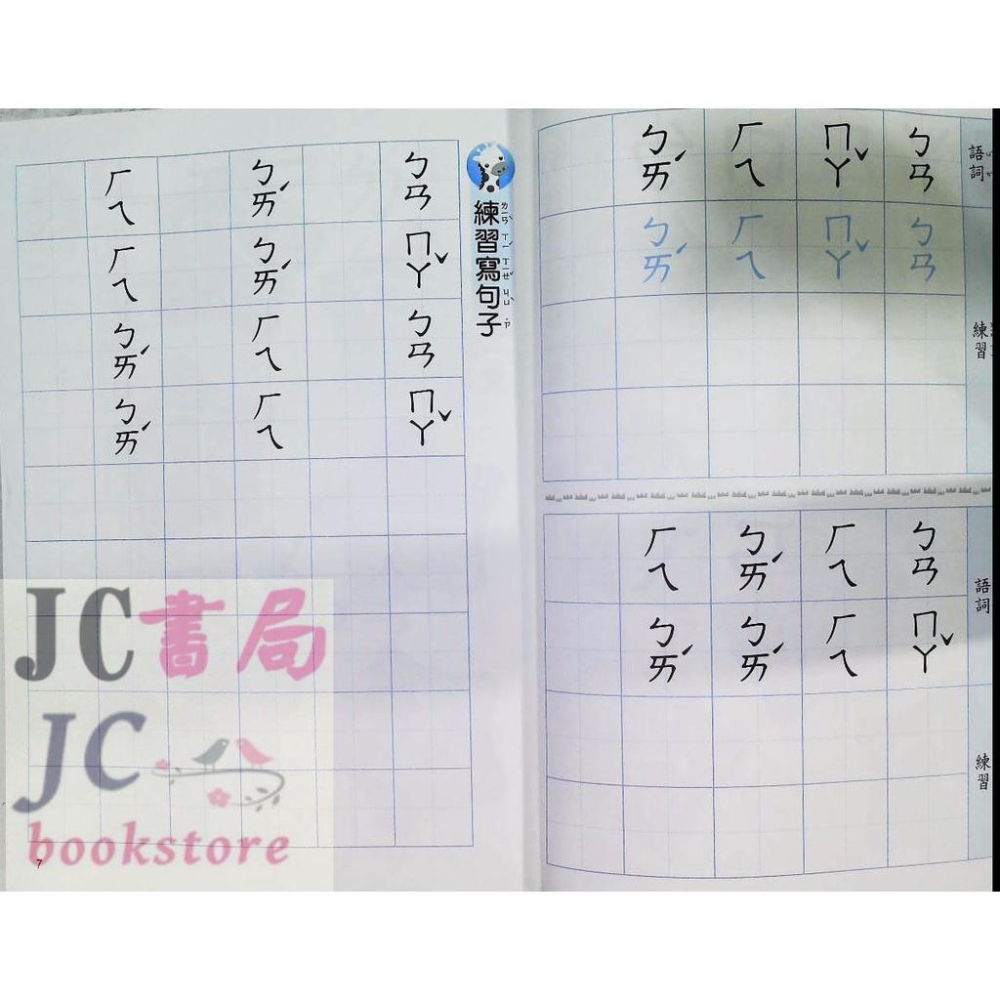 語詞
練習
ㄅㄢ ㄅㄢ
ㄇㄚˇ ㄇㄚˇ
ㄏㄟ ㄏㄟ
ㄅㄞˊ ㄅㄞˊ
語詞
練習
ㄅㄢ ㄇㄚˇ
ㄏㄟ ㄏㄟ
ㄅㄞˊ ㄅㄞˊ
ㄏㄟ ㄅㄞˊ
練習寫句子
ㄌㄧㄢˋ ㄒㄧˊ ㄒㄧㄝˇ ㄐㄩˋ ㄗ˙
ㄅㄢ ㄇㄚˇ ㄅㄢ ㄇㄚˇ
ㄅㄞˊ ㄅㄞˊ ㄏㄟ ㄏㄟ
ㄏㄟ ㄏㄟ ㄅㄞˊ ㄅㄞˊ
7
JC書局
JC
bookstore